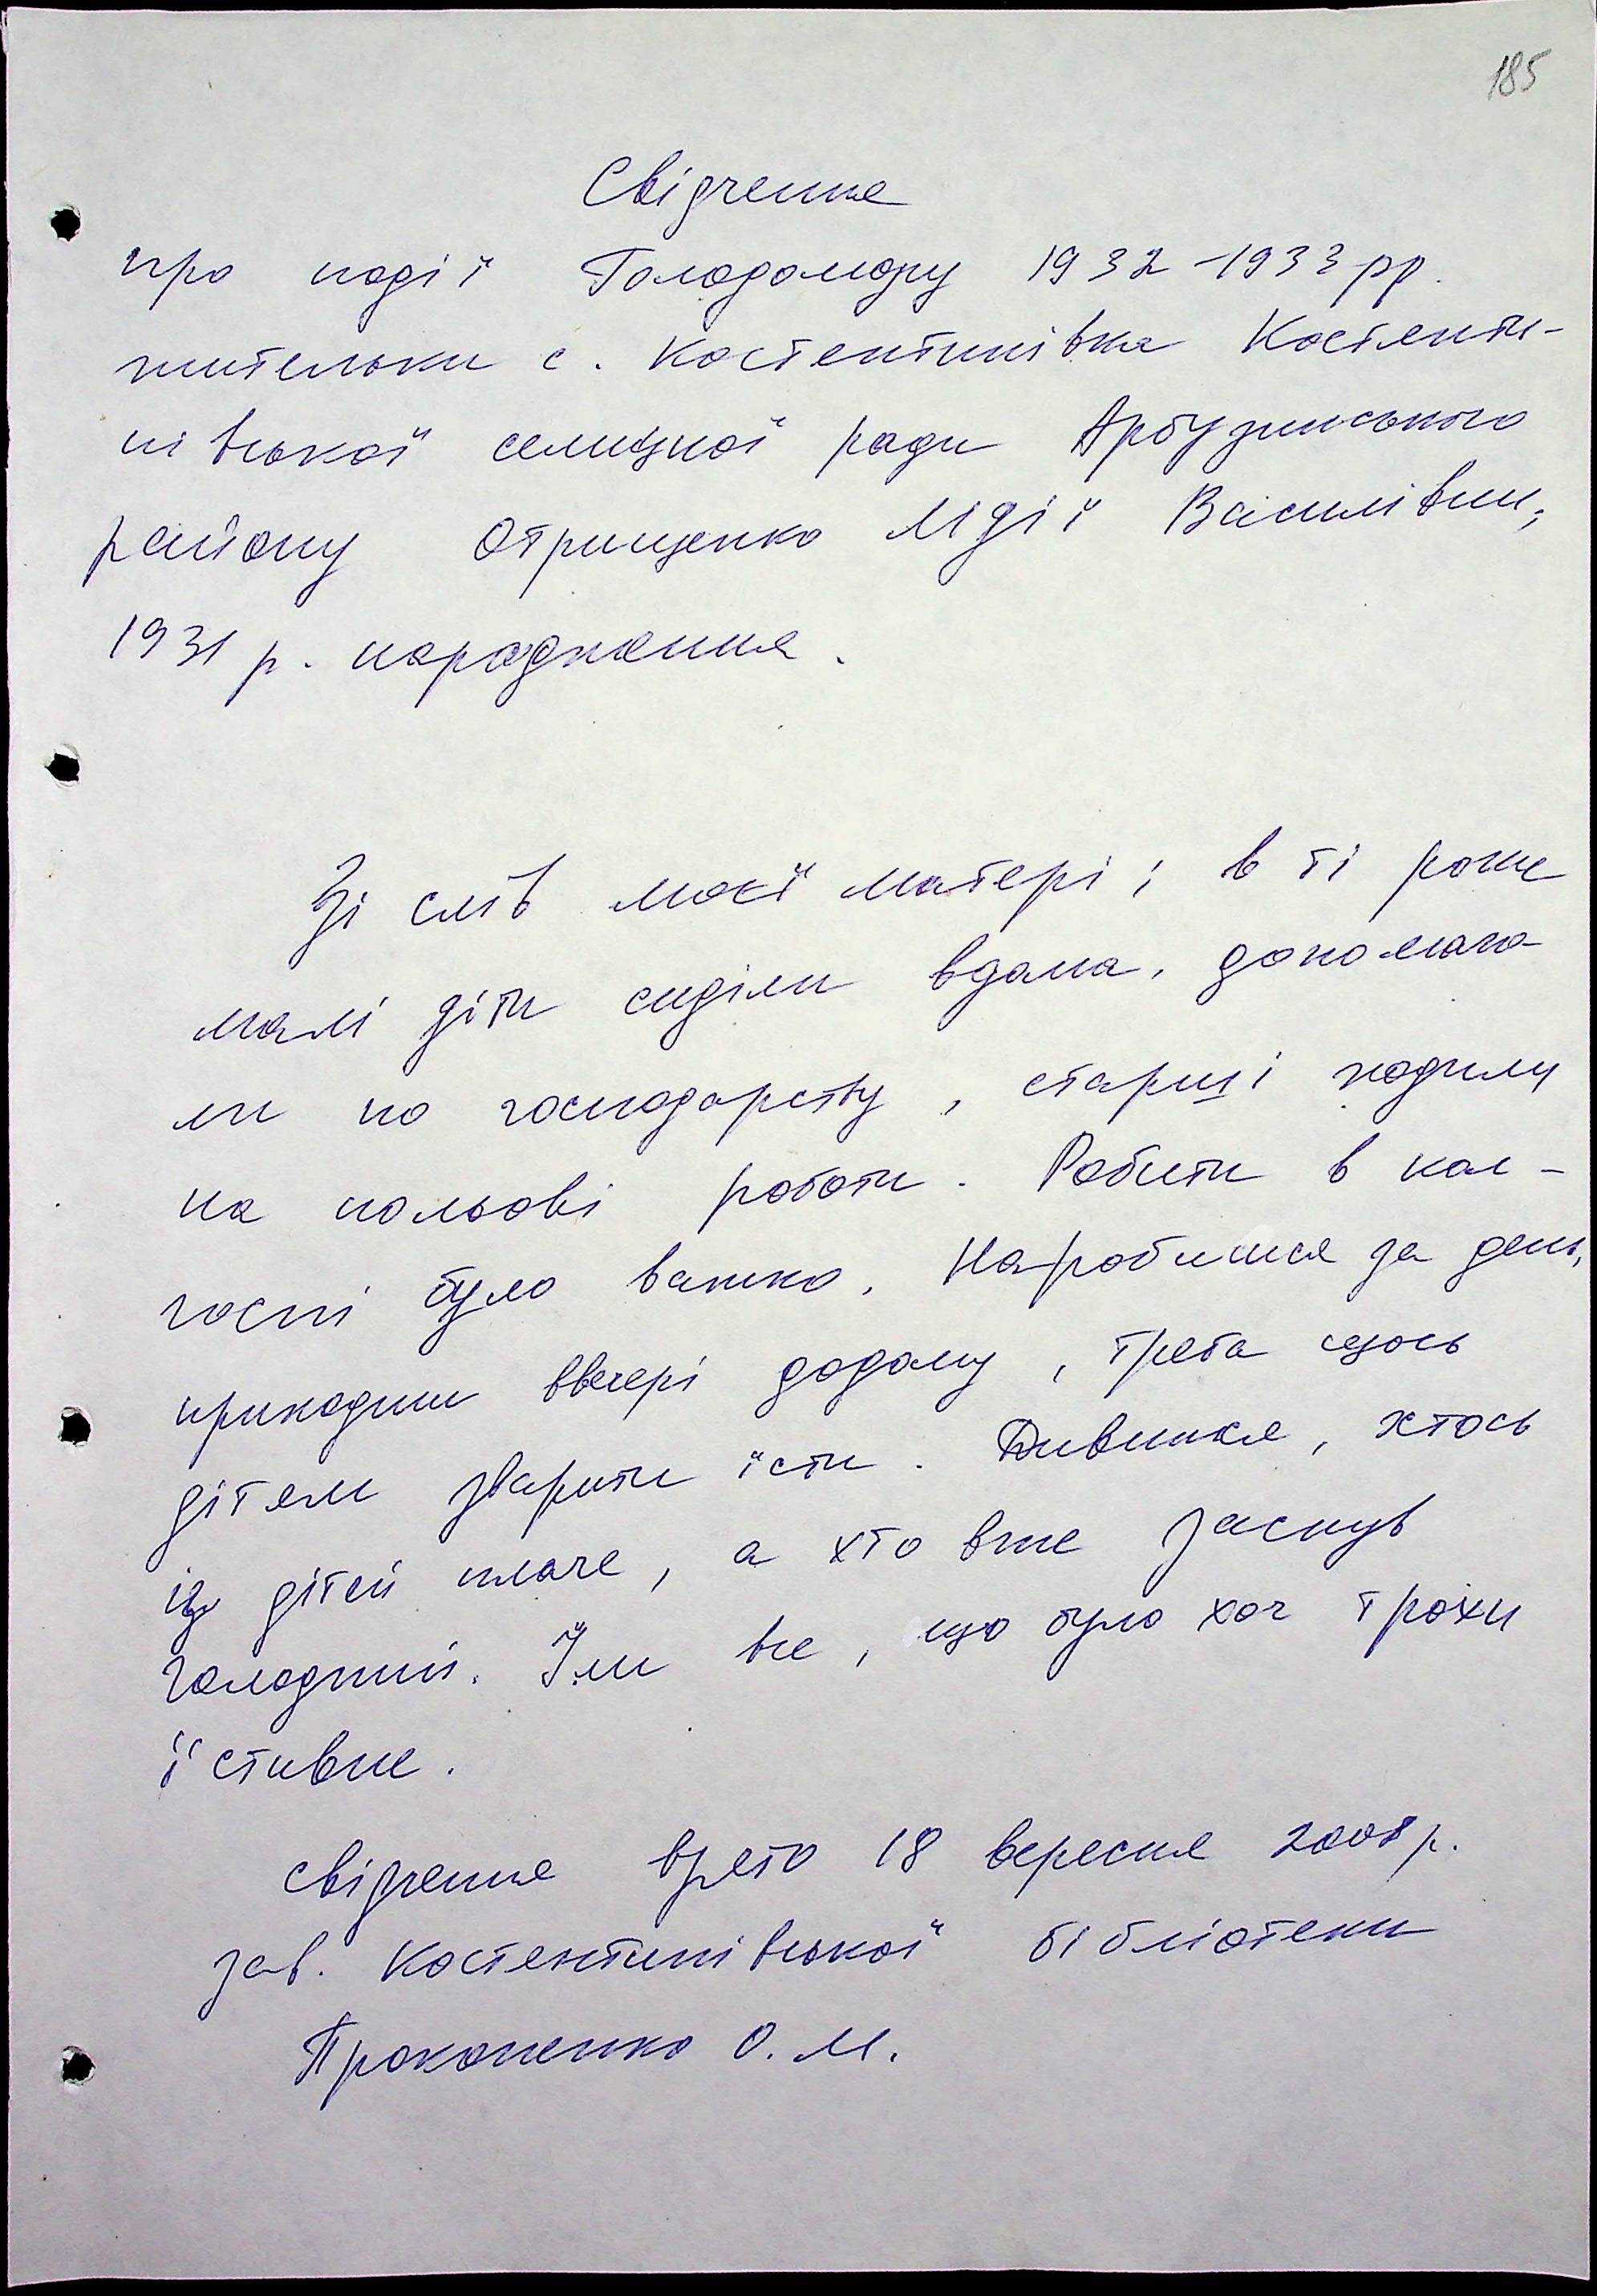 185
Свідчення
про події Голодомору 1932-1933 рр.
жительки с. Костянтинівка Костянти-
нівської селищної ради Арбузинського
району Отрищенко Лідії Василівни,
1931 р. народження.
Зі слів моєї матері, в ті роки
малі діти сиділи вдома, допомага-
ли по господарству, старші ходили
на польові роботи. Робити в кол-
госпі було важко. Наробишся за день,
приходиш ввечері додому, треба щось
дітям зварити їсти. Дивишся, хтось
із дітей плаче, а хто вже заснув
голодний. Їли все, що було хоч трохи
їстивне.
Свідчення взято 18 вересня 2008 р.
зав. Костянтинівської бібліотеки
Прокопенко О. М.